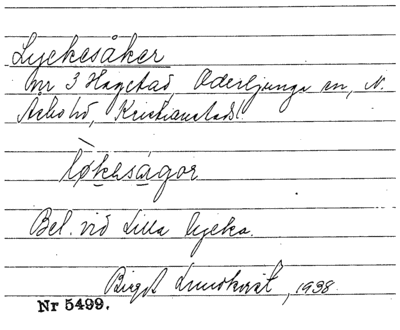 Lyckesåker
nr 3 Hagstad, Oderljunga sn, N.
Åsbo hd, Kristianstads l.
l̀økesågor
Bel. vid Lilla lycka.
Birgit Lundkvist, 1938.
Nr 5499.